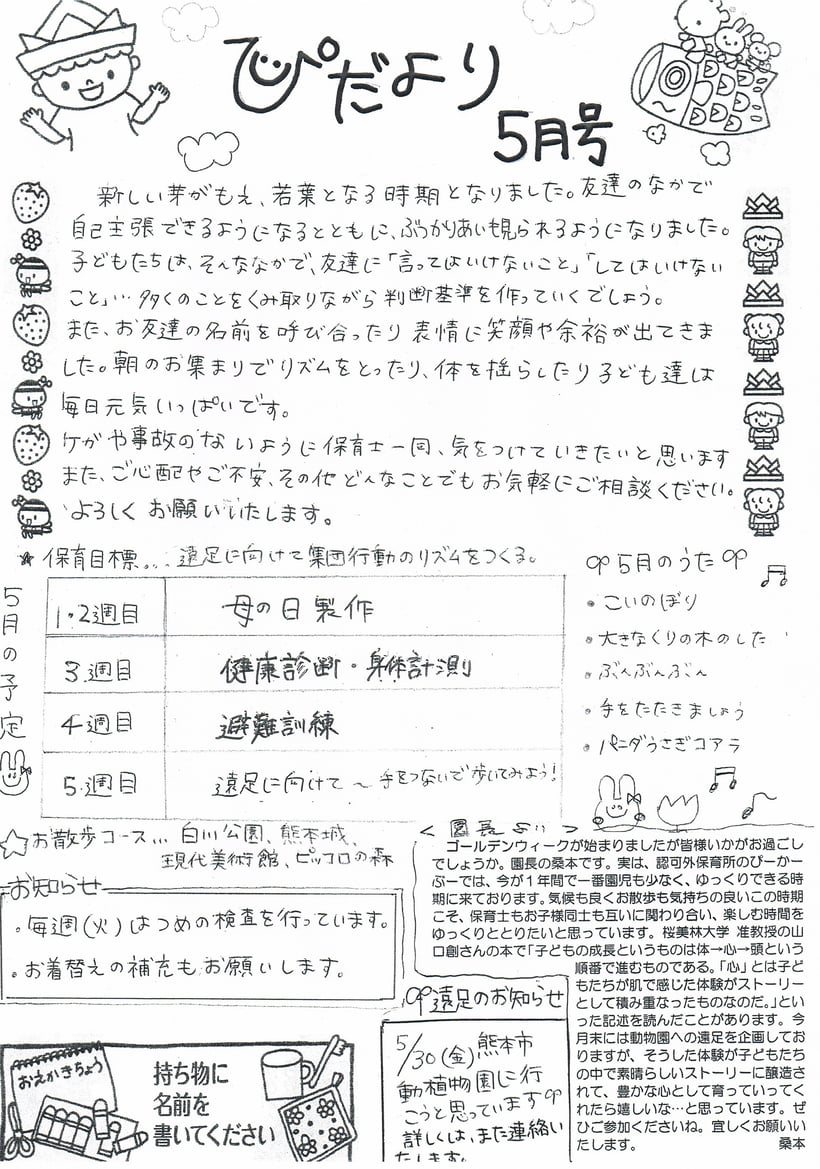 ぴだより
5月号
新しい芽がもえ、若葉となる時期となりました。友達のなかで
自己主張できるようになるとともに、ぶつかりあいも見られるようになりました。
子どもたちは、そんななかで、友達に「言ってはいけないこと」「してはいけない
こと」…多くのことをくみ取りながら判断基準を作っていくでしょう。
また、お友達の名前を呼び合ったり表情に笑顔や余裕が出てきま
した。朝のお集まりでリズムをとったり、体を揺らしたり子ども達は
毎日元気いっぱいです。
ケガや事故のないように保育士一同、気をつけていきたいと思います
また、ご心配やご不安、その他どんなことでもお気軽にご相談ください。
よろしくお願いいたします。
★保育目標... 遠足に向けて集団行動のリズムをつくる。
5月の予定
1・2週目 母の日製作
3週目 健康診断・身体計測
4週目 避難訓練
5週目 遠足に向けて～手をつないで歩いてみよう!
5月のうた
・こいのぼり
・大きなくりの木のした
・ぶんぶんぶん
・手をたたきましょう
・パンダうさぎコアラ
☆お散歩コース… 白川公園、熊本城、
現代美術館、ピッコロの森
お知らせ
・毎週(火)はつめの検査を行っています。
・お着替えの補充もお願いします。
おえかきちょう
持ち物に
名前を
書いてください
遠足のお知らせ
5/30(金)熊本市
動植物園に行
こうと思っています
詳しくは、また連絡い
たします。
<園長より>
ゴールデンウィークが始まりましたが皆様いかがお過ごし
でしょうか。園長の桑本です。実は、認可外保育所のぴーかー
ぶーでは、今が1年間で一番園児も少なく、ゆっくりできる時
期に来ております。気候も良くお散歩も気持ちの良いこの時期
こそ、保育士もお子様同士も互いに関わり合い、楽しむ時間を
ゆっくりととりたいと思っています。桜美林大学 准教授の山
口創さんの本で「子どもの成長というものは体→心→頭という
順番で進むものである。「心」とは子ど
もたちが肌で感じた体験がストーリー
として積み重なったものなのだ。」とい
った記述を読んだことがあります。今
月末には動物園への遠足を企画してお
りますが、そうした体験が子どもたち
の中で素晴らしいストーリーに醸造さ
れて、豊かな心として育っていってく
れたら嬉しいな…と思っています。ぜ
ひご参加くださいね。宜しくお願いい
たします。 桑本